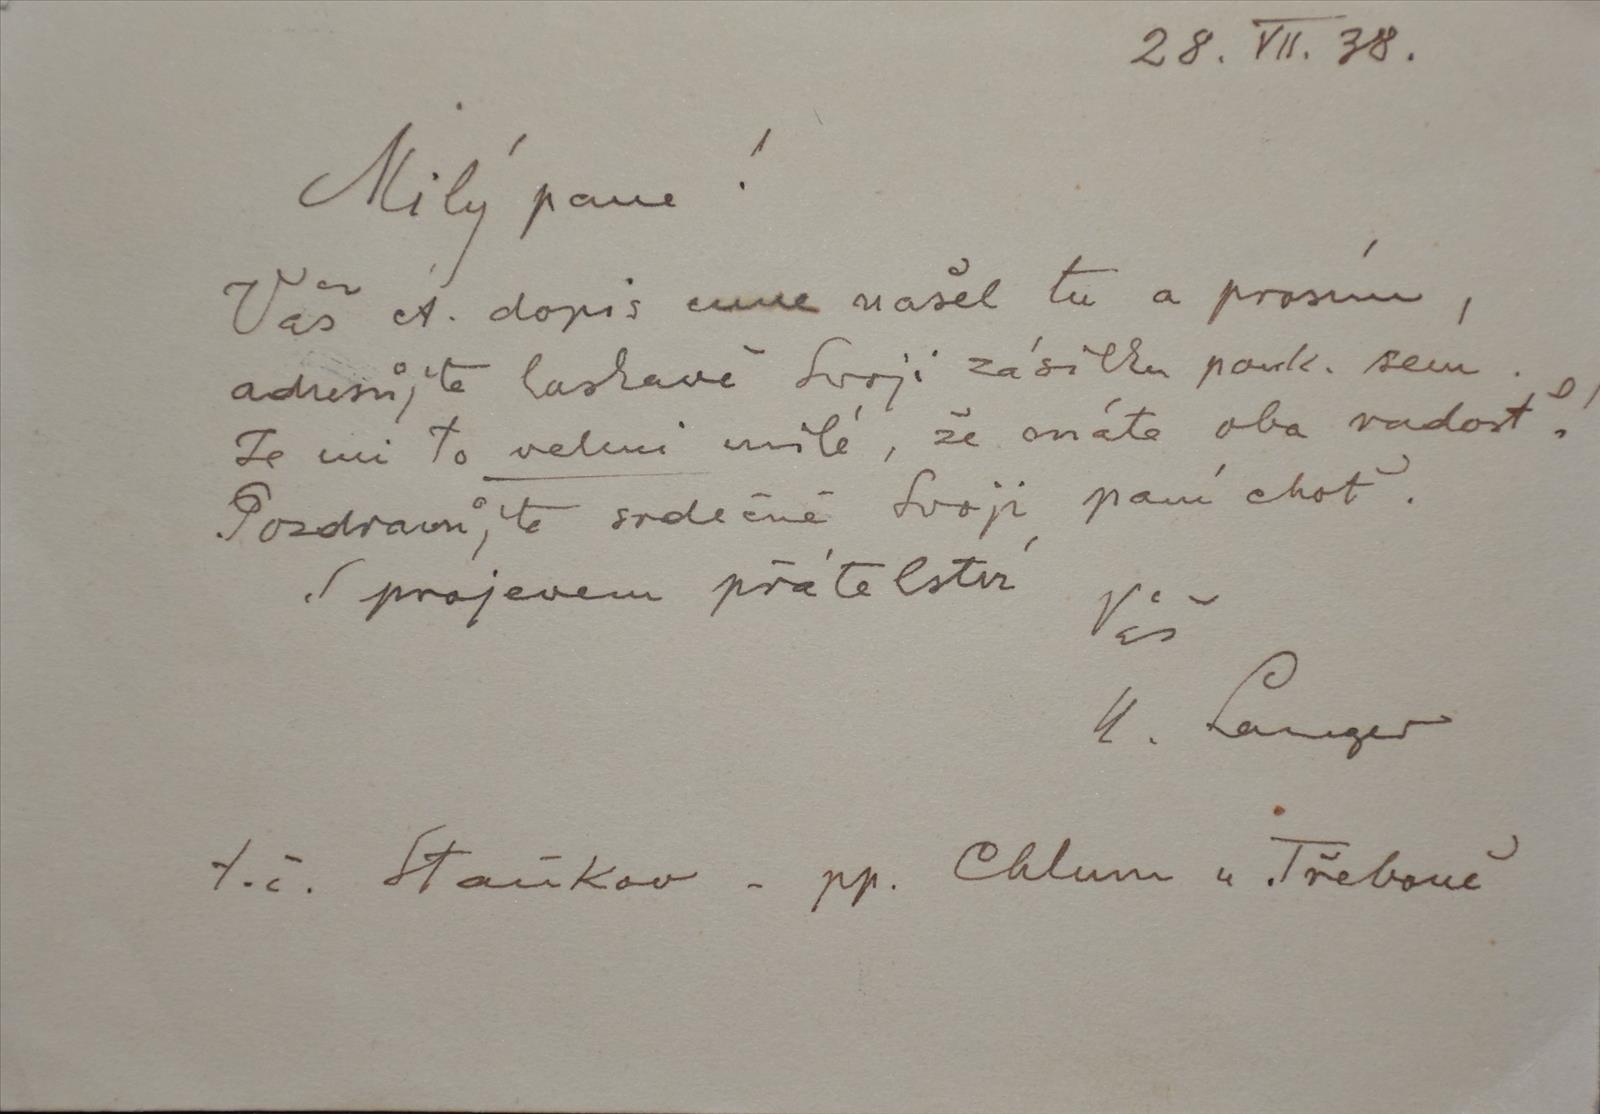 28. VII. 38.
Milý pane!
Váš ct. dopis mne našel tu a prosím,
adresujte laskavě svoji zásilku sem.
Je mi to velmi milé, že máte oba radost!
Pozdravujte srdečně svoji paní choť.
S projevem přátelství
Váš
Langer
t.č. Staňkov - pp. Chlum u Třeboně